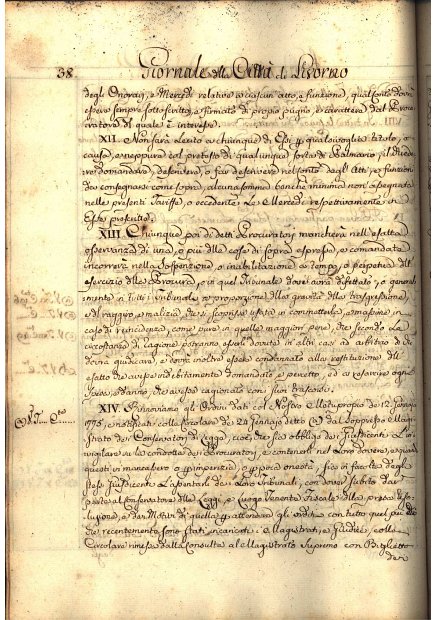 38 Giornale della Città di Livorno
degli Onorarj, e Mercedi relative a ciascun atto, e funzione, qual conto dovrà
essere sempre sottoscritto, e firmato di proprio pugno, e carattere dal Procu-
ratore di quale è interesse.
XII. Non sarà lecito a chiunque di Essi p. qualsivoglia titolo, o
causa, e neppure col pretesto di qualunque sorte di Palmario il chiede
re, domandare, descrivere, o far descrivere nel conto degli Atti, e funzioni
da consegnarsi come sopra, alcuna somma benchè minima non assegnata
nelle presenti Tariffe, o eccedente le Mercedi respettivamente in
Esse prescritte.
XIII. Chiunque poi di detti Procuratori mancherà nell'esatta
osservanza di una, o più delle cose di sopra espresse, e comandate
incorrerà nella Sospensione, o inabilitazione a tempo, o perpetua all'
esercizio della Procura, o in quel Tribunale dove avrà difettato, o general-
mente in tutti i Tribunali a proporzione della gravità della trasgressione,
e del raggiro, e malizia che si scoprisse usata in commetterla, e massime in
caso di recidenza, come pure in quelle maggiori pene, che secondo le
circostanze di ragione potranno esser dovute in altri casi ad arbitrio di chi
dovrà giudicare, e dovrà inoltre esser condannato alla restituzione dell'
esatto che avesse indebitamente domandato, e percetto, ed a risarcire ogni
Spesa, e danno, che avesse cagionato con suoi trascorsi.
XIV. Rinnoviamo gli Ordini dati col Nostro Motuproprio de' 12 Gennajo
1775, e notificati colla Circolare de' 24 Gennajo detto dal soppresso Magi-
strato de' Conservatori di Legge, cioè, che sia obbligo dei Giusdicenti l'in-
vigilare alla condotta dei Procuratori, e contenerli nel loro dovere, e qualora
questi vi mancassero o p. imperizia, o p. poca onestà, sia in facoltà degli
stessi Giusdicenti il sospenderli dai loro Tribunali, con dover subito dar
parte al Conservatore delle Leggi, e Luogo Tenente Fiscale della presa riso-
luzione, e dei Motivi di quella p. attenderne gli ordini con tutto quel più che
che recentemente sono stati incaricati i Magistrati, e Giudici, colla
Circolare rimessa dalla Consulta al Magistrato Supremo con Biglietto
de'